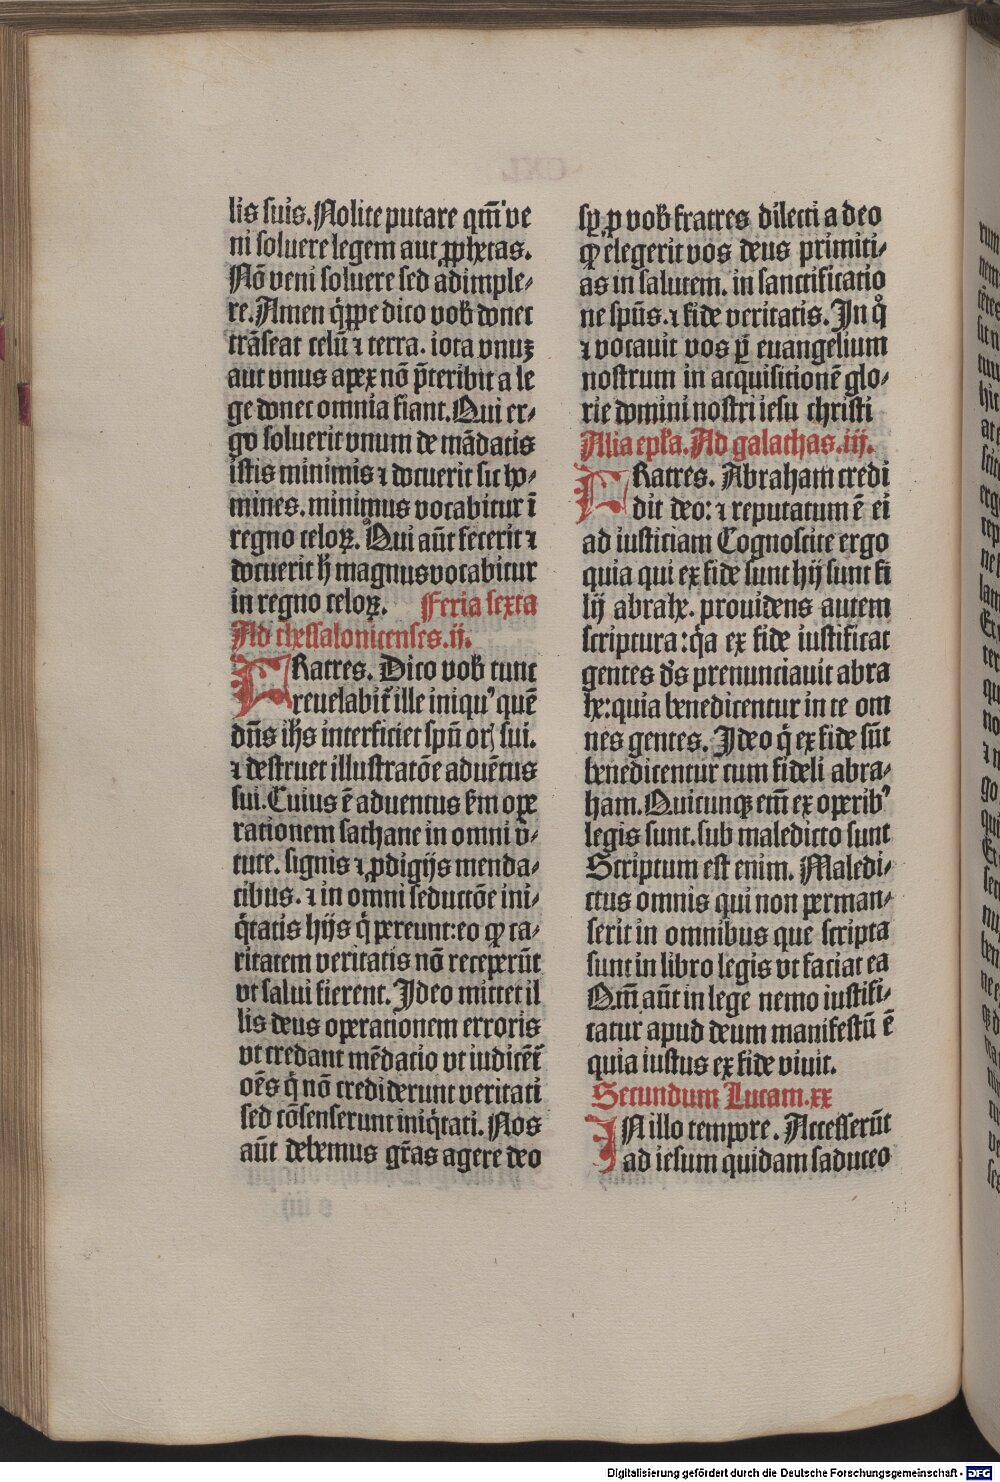 lis suis. Nolite putare qm̅ ve
ni soluere legem aut ꝓphetas.
Nō veni soluere sed adimple-
re. Amen q̇ppe dico vob̕ donec
trāseat celū ⁊ terra. iota vnuꝫ
aut vnus apex nō p̄teribit a le
ge donec omnia fiant. Qui er-
go soluerit vnum de mādatis
istis minimis ⁊ docuerit sic ho-
mines. minimus vocabitur ī
regno celoꝝ. Qui aūt fecerit ⁊
docuerit h̄ magnus vocabitur
in regno celoꝝ. Feria sexta
Ad thessalonicenses .ii.
FRatres. Dico vob̕ tunc
reuelabit̄ ille iniqu᾽ quē
dn̄s ih̄s interficiet spū orꝭ sui.
⁊ destruet illustratōe aduētus
sui. Cuius ē aduentus ẜm ope
rationem sathane in omni v̄-
tute. signis ⁊ ꝓdigijs menda-
cibus. ⁊ in omni seductōe ini-
q̇tatis hijs q̇ pereunt: eo ꝙ ca-
ritatem veritatis nō receperūt
vt salui fierent. Ideo mittet il
lis deus operationem erroris
vt credant mēdatio vt iudicēt̄
oēs q̇ nō crediderunt veritati
sed cōsenserunt iniq̇tati. Nos
aūt debemus gr̄as agere deo
sꝑ ꝓ vob̕ fratres dilecti a deo
ꝙ elegerit vos deus primiti-
as in salutem. in sanctificatio
ne spūs. ⁊ fide veritatis. In qͦ
⁊ vocauit vos ꝑ euangelium
nostrum in acquisitionē glo-
rie domini nostri iesu christi
Alia epl̕a. Ad galathas .iij.
FRatres. Abraham credi
dit deo: ⁊ reputatum ē ei
ad iusticiam Cognoscite ergo
quia qui ex fide sunt hij sunt fi
lij abrahe. prouidens autem
scriptura: q̇a ex fide iustificat
gentes d̄s prenunciauit abra
he: quia benedicentur in te om
nes gentes. Ideo q̇ ex fide sūt
benedicentur cum fideli abra-
ham. Quicunqꝫ em̄ ex operib᾽
legis sunt. sub maledicto sunt
Scriptum est enim. Maledi-
ctus omnis qui non perman-
serit in omnibus que scripta
sunt in libro legis vt faciat ea
Qm̄ aūt in lege nemo iustifi-
catur apud deum manifestū ē
quia iustus ex fide viuit.
Secundum Lucam .xx
IN illo tempore. Accesserūt
ad iesum quidam saduceo
Digitalisierung gefördert durch die Deutsche Forschungsgemeinschaft - DFG